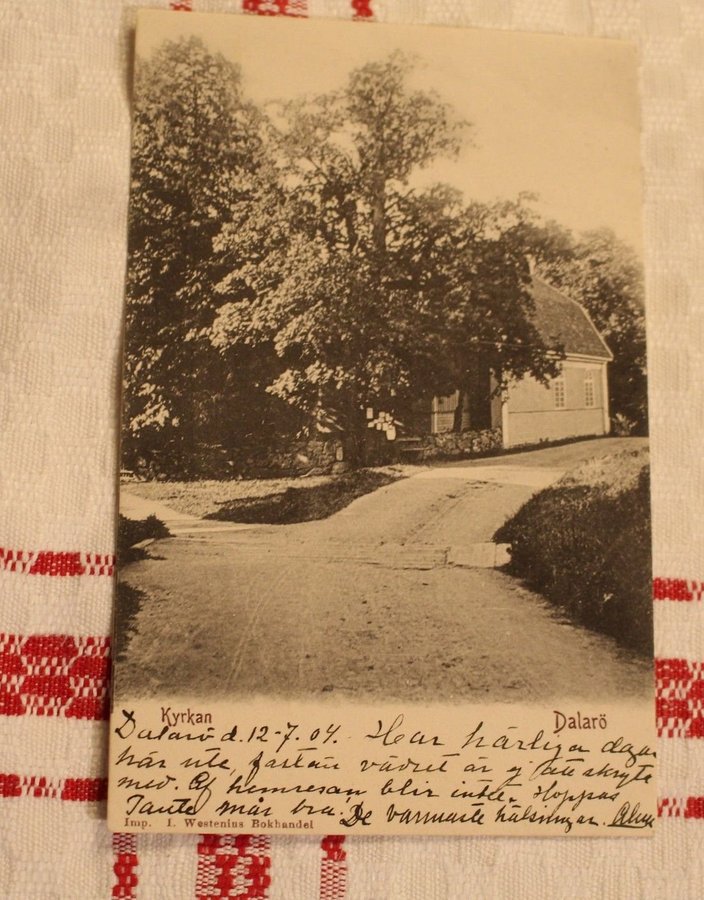 Kyrkan Dalarö
Dalarö d. 12-7. 04. Har härliga dagar
här ute, fastän vädret är ej att skryta
med. Af hemresan blir intet. Hoppas
Tante mår bra. De varmaste hälsningar.
Imp. I. Westenius Bokhandel